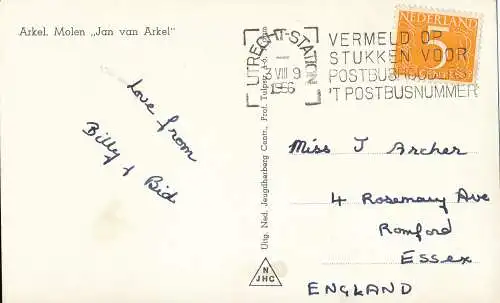 Arkel. Molen „Jan van Arkel”
UTRECHT-STATION
VIII 9
1956
VERMELD OP
STUKKEN VOOR
POSTBUS
'T POSTBUSNUMMER
NEDERLAND
5
Love from
Billy & Bid
Uitg. Ned. Jeugdherberg Centr., Prof. Tulpstr.
N
JHC
Miss J Archer
4 Rosemary Ave
Romford
Essex
ENGLAND